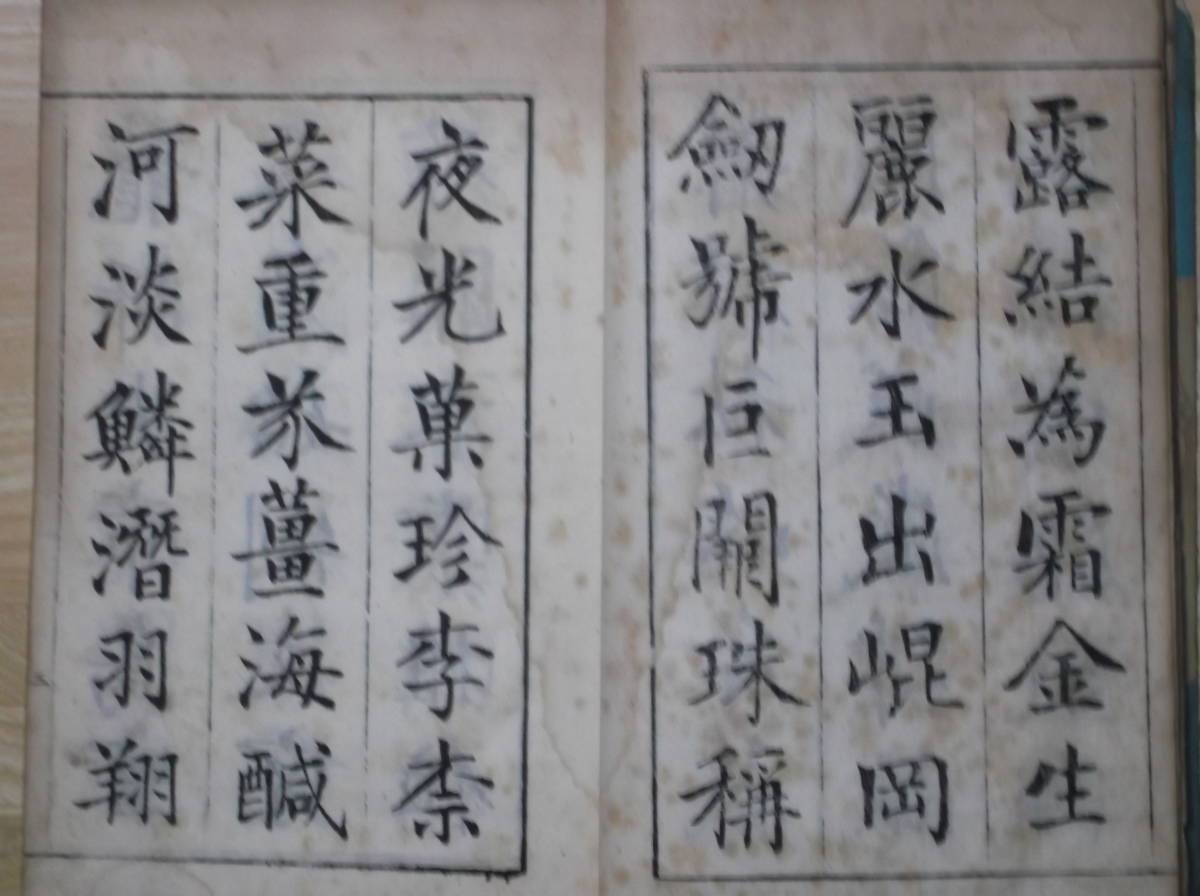 露結為霜金生
麗水玉出崐岡
劒號巨闕珠稱
夜光菓珍李柰
菜重芥薑海醎
河淡鱗潛羽翔